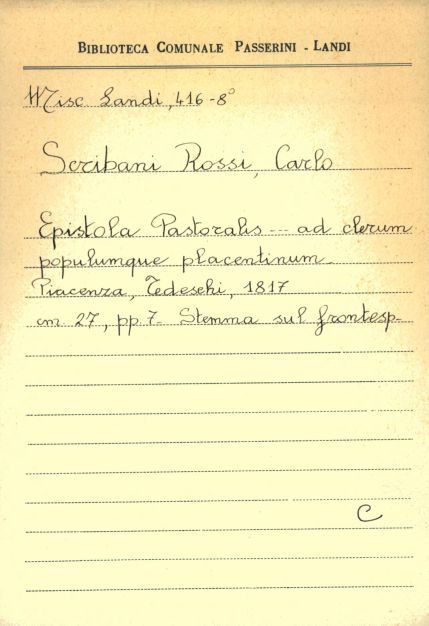 BIBLIOTECA COMUNALE PASSERINI - LANDI
Misc. Landi, 416-8°
Scribani Rossi, Carlo
Epistola Pastoralis --- ad clerum
populumque placentinum.
Piacenza, Tedeschi, 1817
cm 27, pp. 7. Stemma sul frontesp.
C